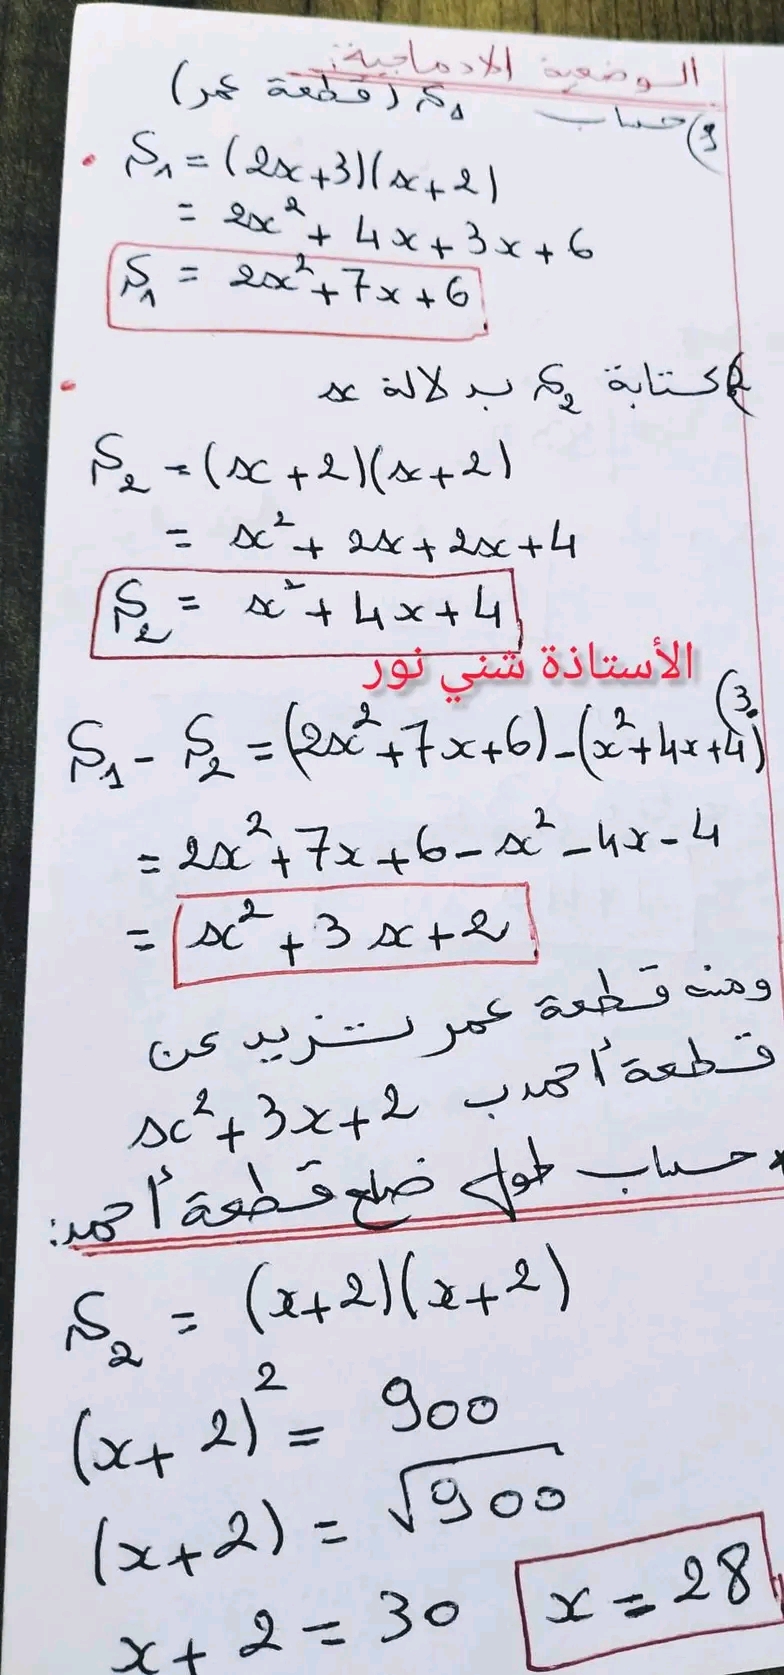 الوضعية الادماجية:
1) حساب S₁ (قطعة عمر)
S₁ = (2x+3)(x+2)
= 2x² + 4x + 3x + 6
S₁ = 2x² + 7x + 6
2) كتابة S₂ بدلالة x
S₂ = (x+2)(x+2)
= x² + 2x + 2x + 4
S₂ = x² + 4x + 4
الأستاذة شني نور
3)
S₁ - S₂ = (2x² + 7x + 6) - (x² + 4x + 4)
= 2x² + 7x + 6 - x² - 4x - 4
= x² + 3x + 2
ومنه قطعة عمر تزيد عن
قطعة أحمد ب x² + 3x + 2
* حساب طول ضلع قطعة أحمد:
S₂ = (x+2)(x+2)
(x+2)² = 900
(x+2) = √900
x + 2 = 30 x = 28